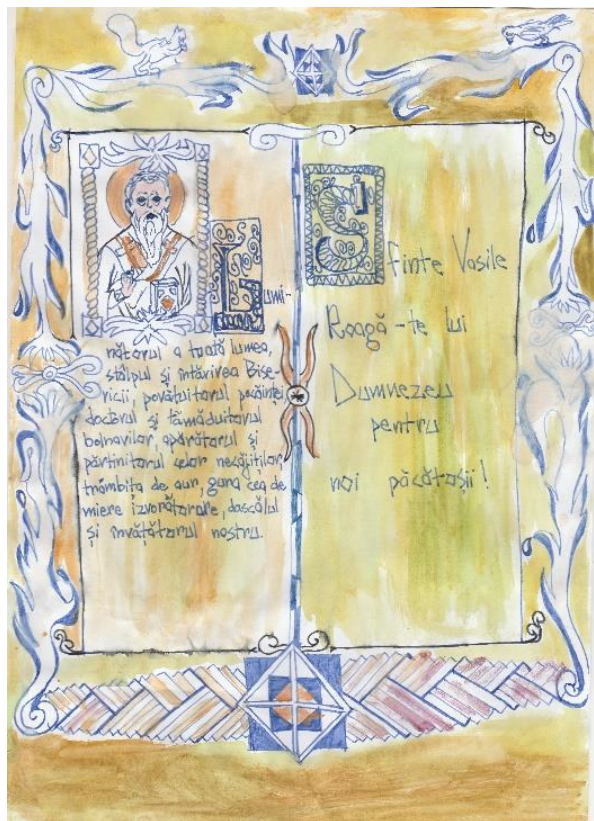 Lumi-
nătorul a toată lumea,
stâlpul și întărirea Bise-
ricii, povățuitorul pocăinței
doctorul și tămăduitorul
bolnavilor, apărătorul și
părtinitorul celor necăjiților,
trâmbița de aur, gura cea de
miere izvorâtoare, dascălul
și învățătorul nostru.
Sfinte Vasile
Roagă-te lui
Dumnezeu
pentru
noi păcătoșii!